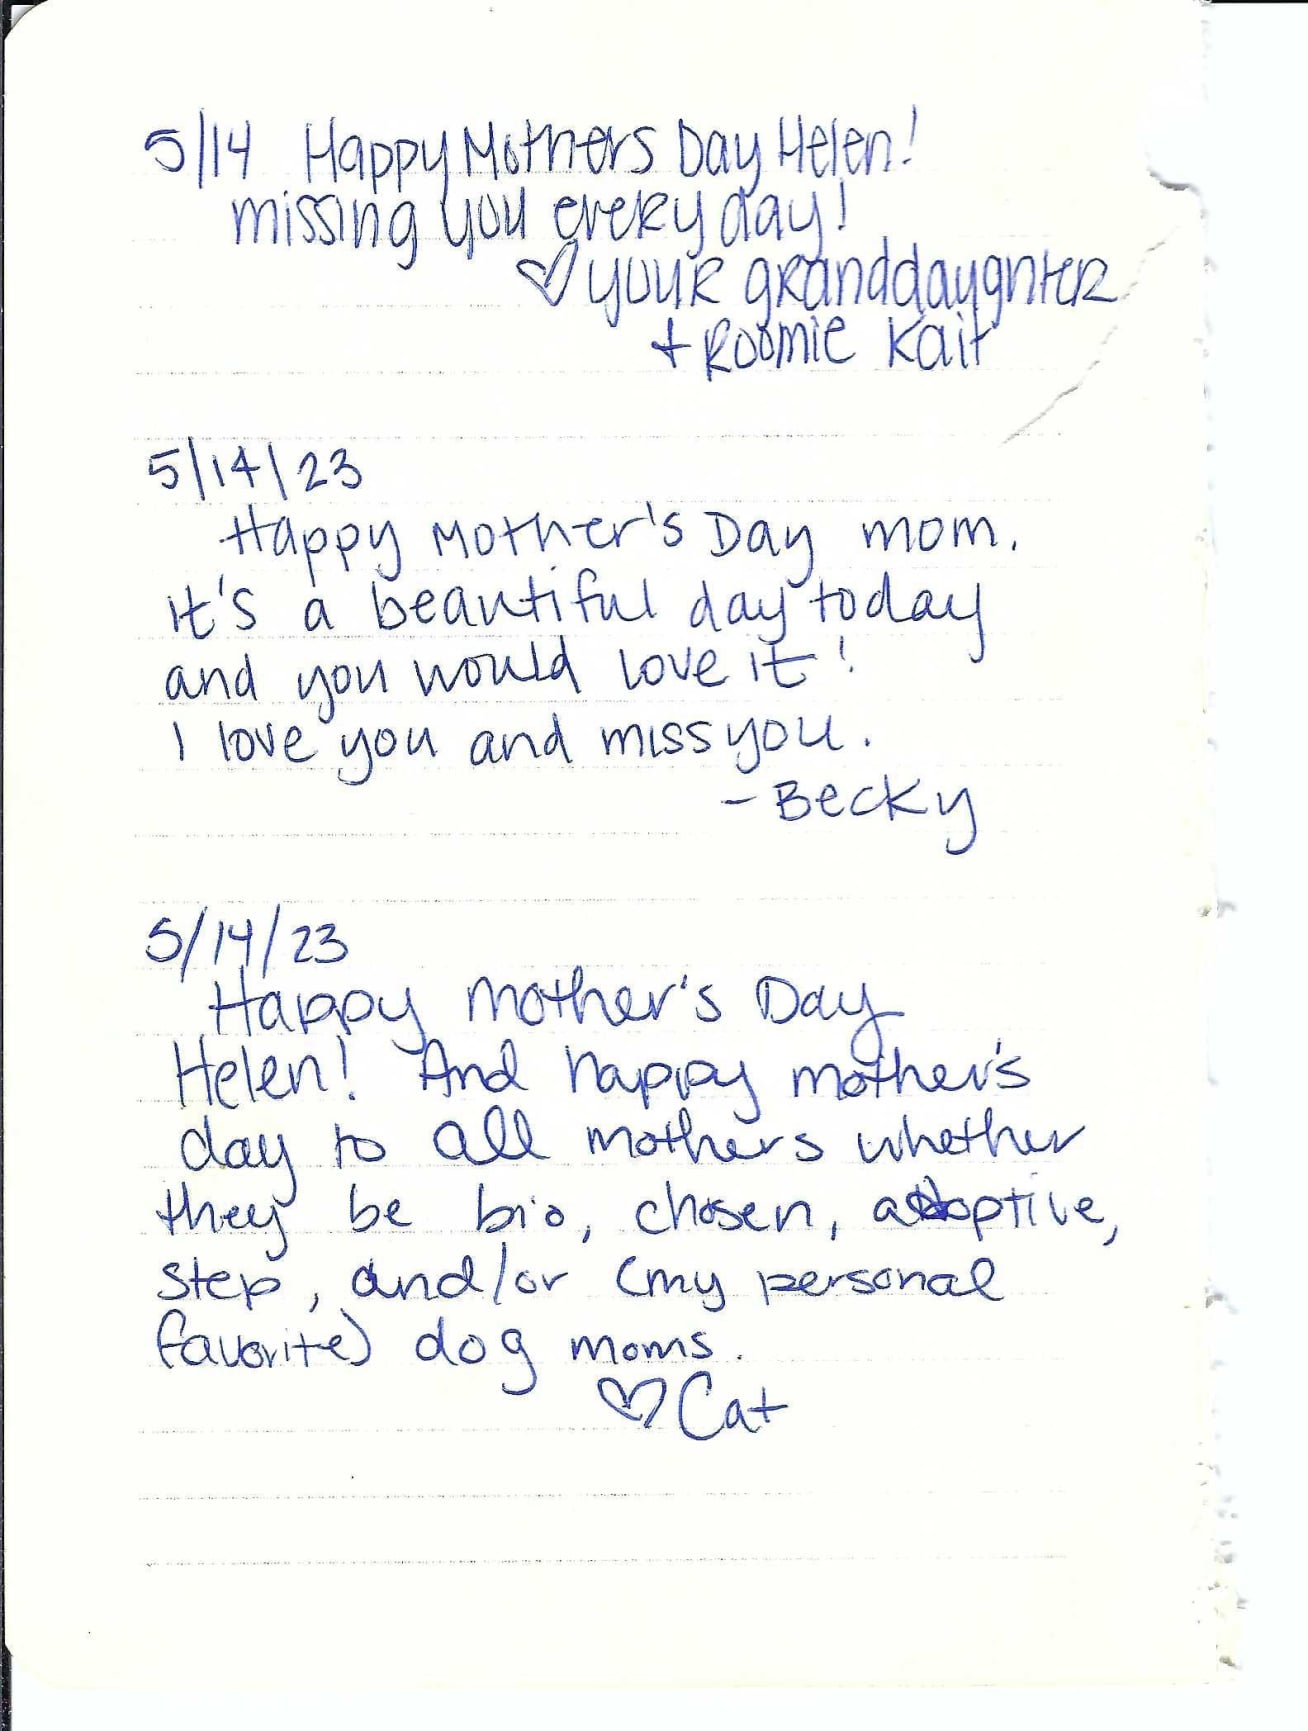 5/14 Happy Mothers Day Helen!
missing you every day!
♡ your granddaughter
+ Roomie Kait
5/14/23
Happy Mother's Day mom.
It's a beautiful day today
and you would love it!
I love you and miss you.
- Becky
5/14/23
Happy Mother's Day
Helen! And happy mother's
day to all mothers whether
they be bio, chosen, adoptive,
step, and/or (my personal
favorite) dog moms.
♡ Cat